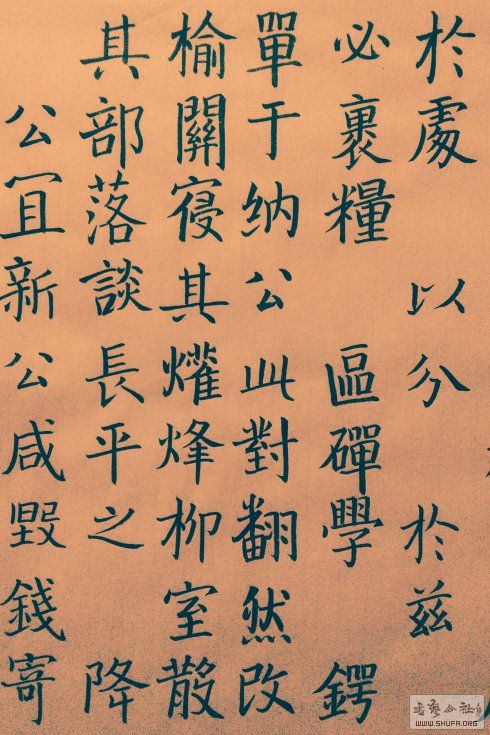 於處 以分 於茲
必裹糧 區磾學 鍔
單于納公此對翻然改
榆關寑其爟烽柳室散
其部落談長平之 降
公冝新公咸毀錢寄
書藝公社
WWW.SHUFA.ORG